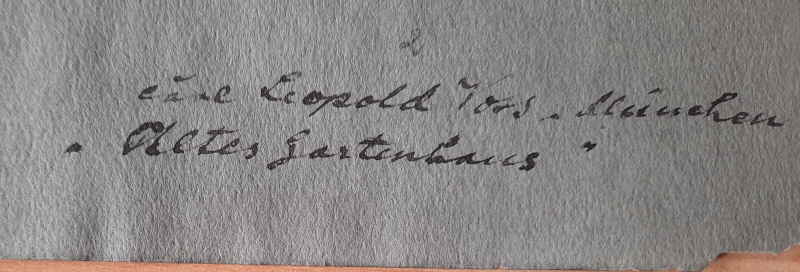 2
Carl Leopold Voss, München
„Altes Gartenhaus"